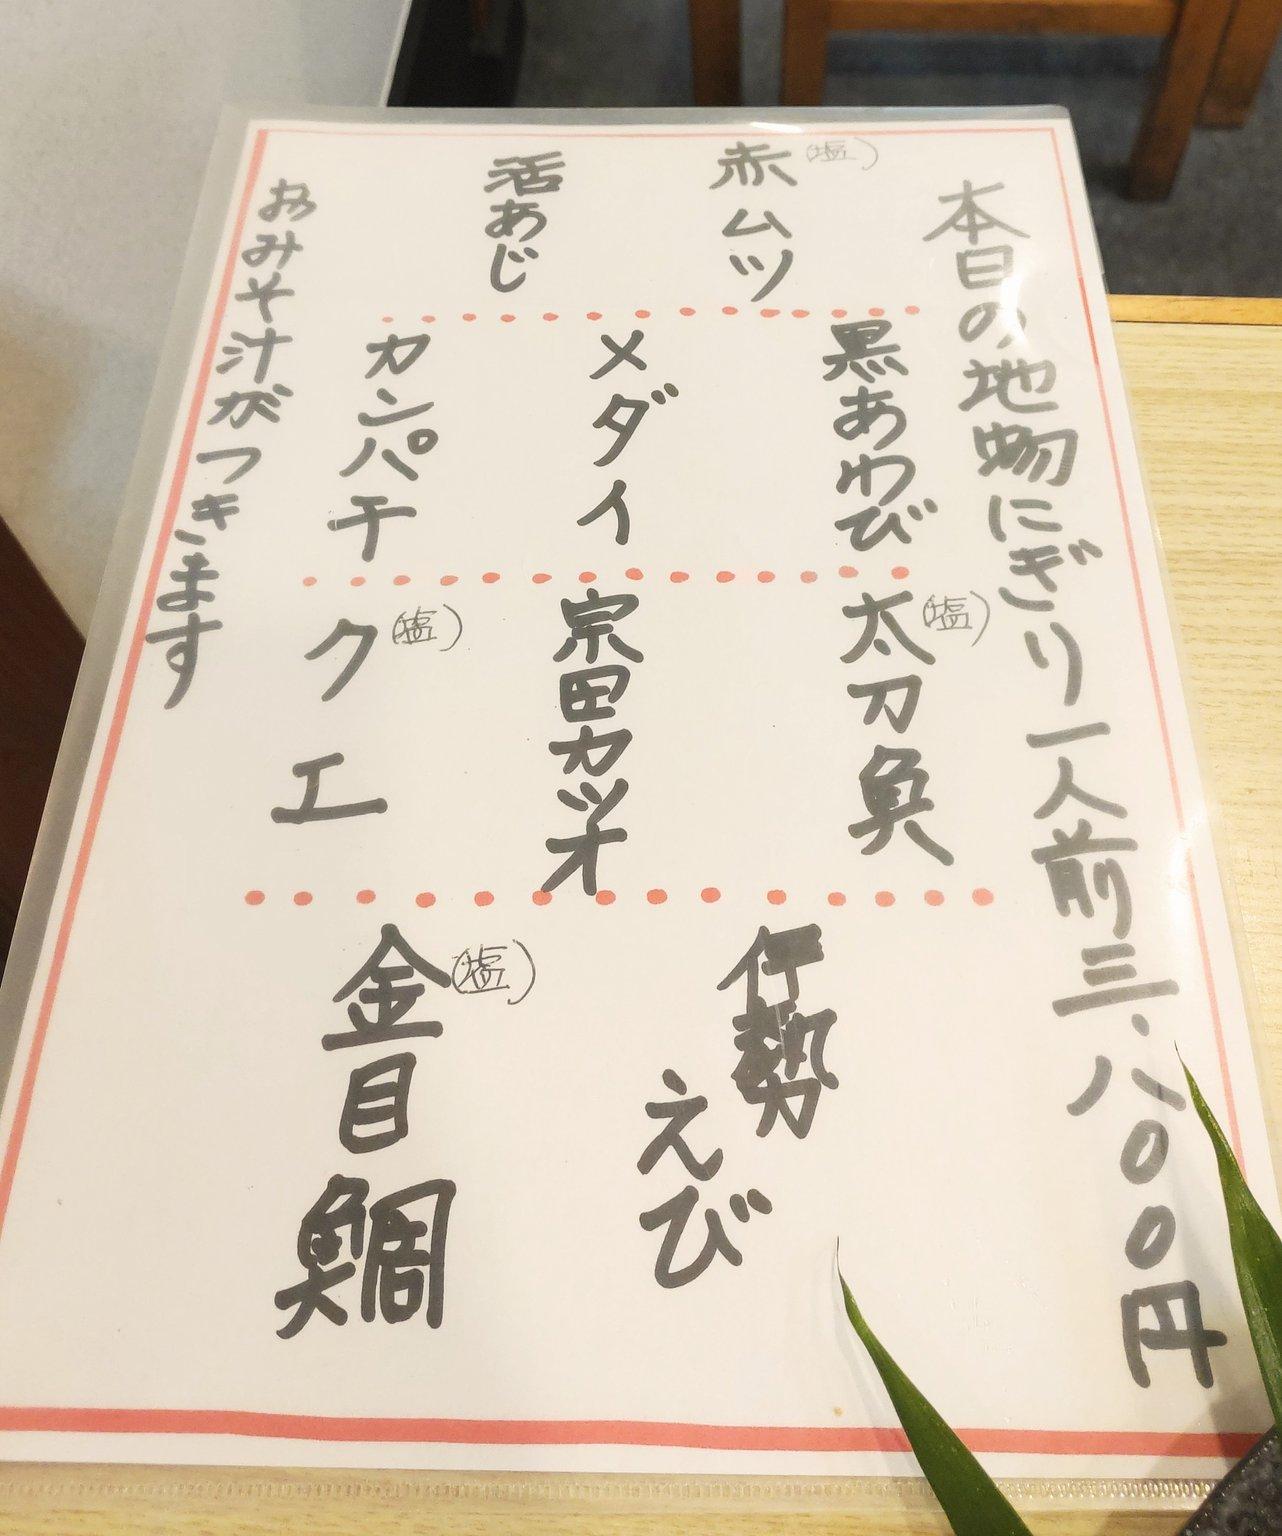 本日の地物にぎり一人前三、八〇〇円
赤ムツ(塩)
活あじ
黒あわび
メダイ
カンパチ
太刀魚(塩)
宗田カツオ
クエ(塩)
伊勢
えび
金目鯛(塩)
おみそ汁がつきます